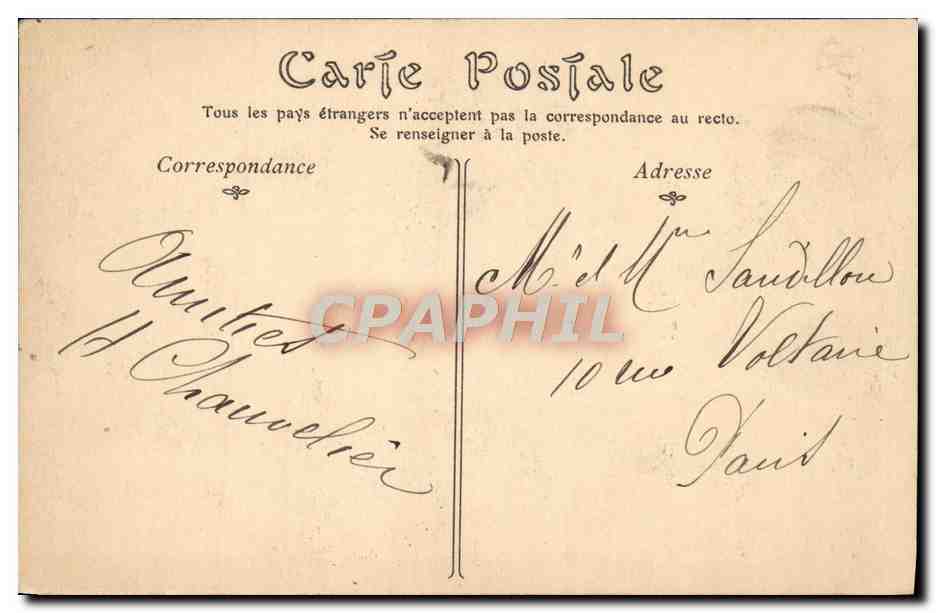 Carte Postale
Tous les pays étrangers n'acceptent pas la correspondance au recto.
Se renseigner à la poste.
Correspondance
Adresse
Amitiés
H Chauvelier
Mr et Mme Sandillon
10 rue Voltaire
Paris
CPAPHIL